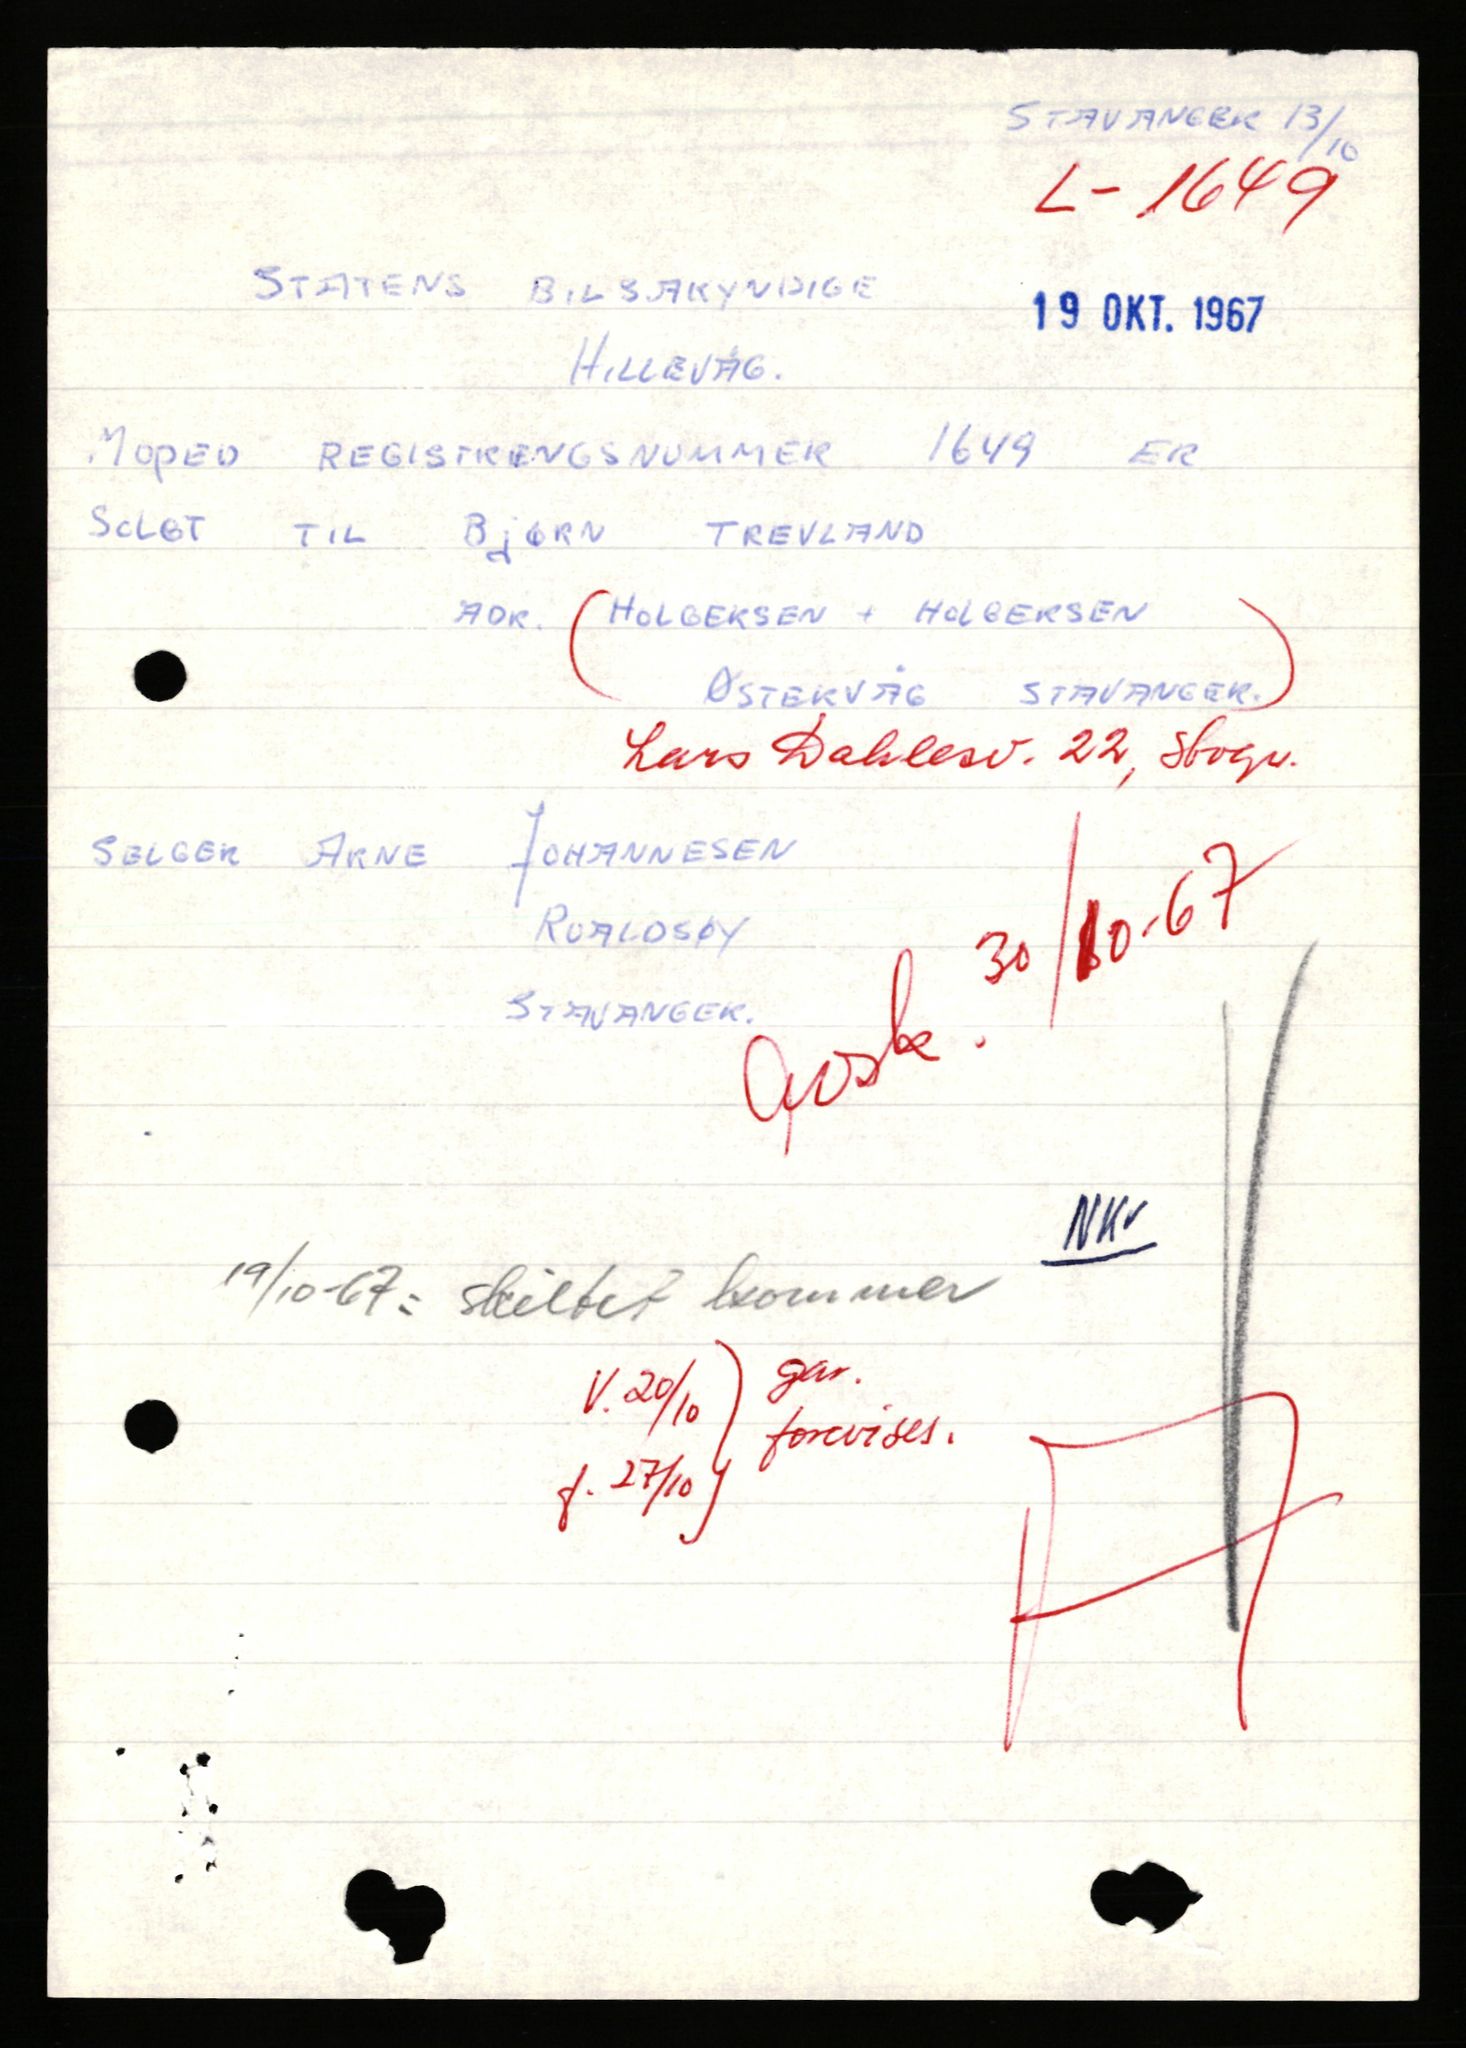 STAVANGER 13/10
L-1649
STATENS BILSAKYNDIGE
19 OKT. 1967
HILLEVÅG.
MOPED REGISTRENGSNUMMER 1649 ER
SOLGT TIL BJØRN TREVLAND
ADR. (HOLGERSEN + HOLGERSEN
ØSTERVÅG STAVANGER.)
Lars Dahlesv. 22, Stvgr.
SELGER ARNE JOHANNESEN
ROALDSØY
STAVANGER.
30/10-67
NKV
19/10-67: skiltet kommer
V. 20/10 } gar.
f. 27/10 forevises.